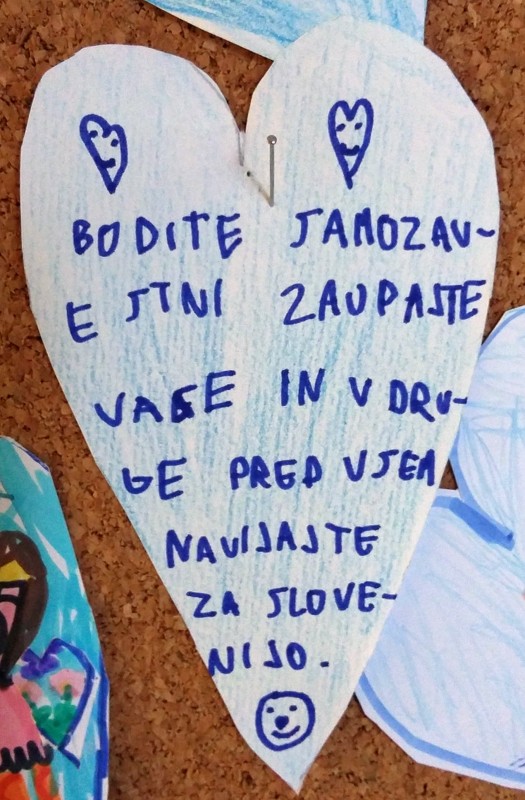 BODITE SAMOZAV-
E STNI ZAUPAJTE
VASE IN V DRU-
GE PRED VSEM
NAVIJAJTE
ZA SLOVE-
NIJO.